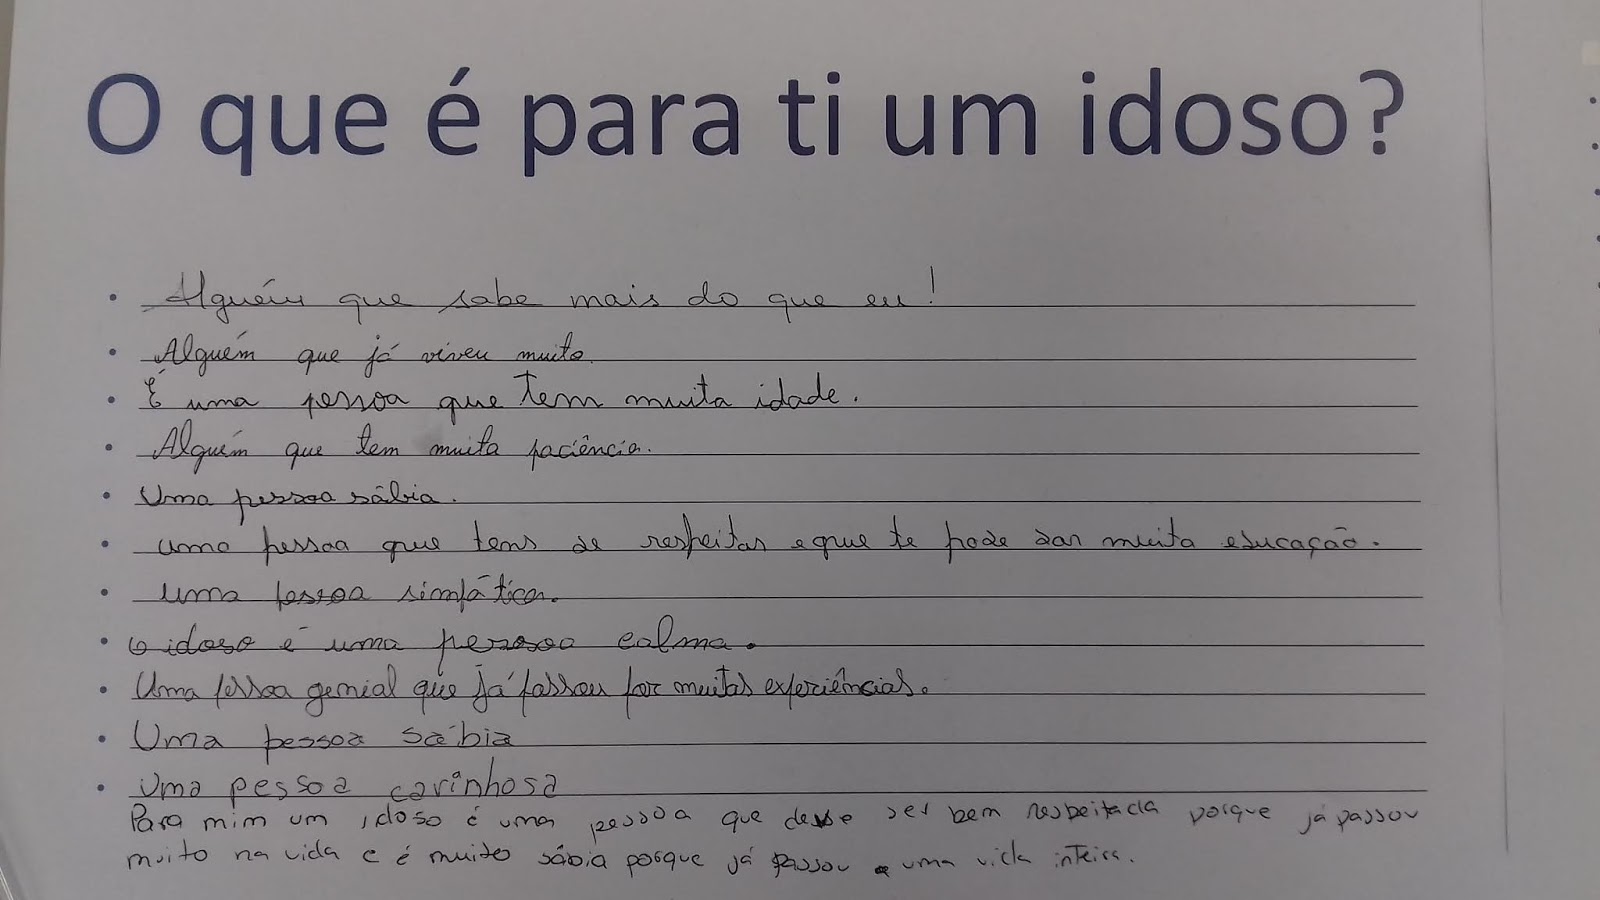 O que é para ti um idoso?
Alguém que sabe mais do que eu!
Alguém que já viveu muito.
É uma pessoa que tem muita idade.
Alguém que tem muita paciência.
Uma pessoa sábia.
uma pessoa que tens de respeitar e que te pode dar muita educação.
uma pessoa simpática.
O idoso é uma pessoa calma.
Uma pessoa genial que já passou por muitas experiências.
Uma pessoa sábia
uma pessoa carinhosa
Para mim um idoso é uma pessoa que deve ser bem respeitada porque já passou
muito na vida e é muito sábia porque já passou uma vida inteira.